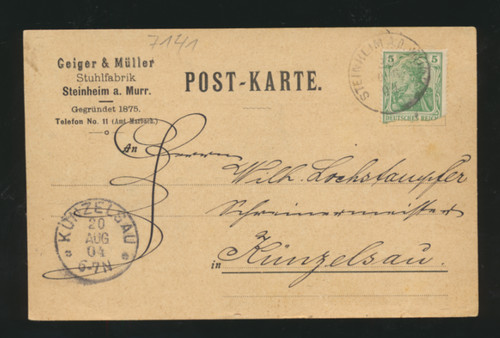 7141
Geiger & Müller
Stuhlfabrik
Steinheim a. Murr.
Gegründet 1875.
Telefon No. 11 (Amt Marbach.)
POST-KARTE.
STEINHEIM
5 5
DEUTSCHES REICH
An Herrn
Wilh. Lochstampfer
Schreinermeister
in Künzelsau.
KÜNZELSAU
20
AUG
04
6-7N